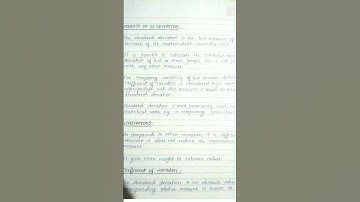 MERITS OF SD DEVIATION
The Standard deviation is the best measure of
because of its mathematical characteristics.
It is possible to calculate the combined
deviation of two or more groups. This is not
with any other measure
For comparing variability of two or more
coefficient of variation is considered to be most
appropriate and this measure is based on mean
Standard deviation
Standard deviation is most prominently used in
statistical work eg, in computing
LIMITATIONS
As compared to other measures it is difficult
However it does not reduce the importance
measure.
It gives more weight to extreme values
Coefficient of Variation :
The Standard deviation is an absolute
corresponding relative measure is known as